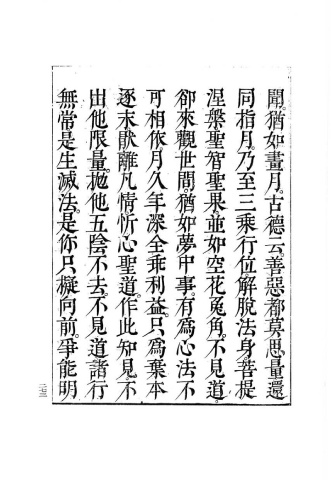 聞。猶如畫月。古德云。善惡都莫思量。還
同指月。乃至三乘行位解脫法身。菩提
涅槃聖智聖果。並如空花兔角。不見道。
卻來觀世間。猶如夢中事。有為心法不
可相依。月久年深。全乖利益。只為棄本
逐末。猒離凡情。忻心聖道。作此知見。不
出他限量。拋他五陰不去。不見道諸行
無常是生滅法。是你只擬向前。爭能明
二七三